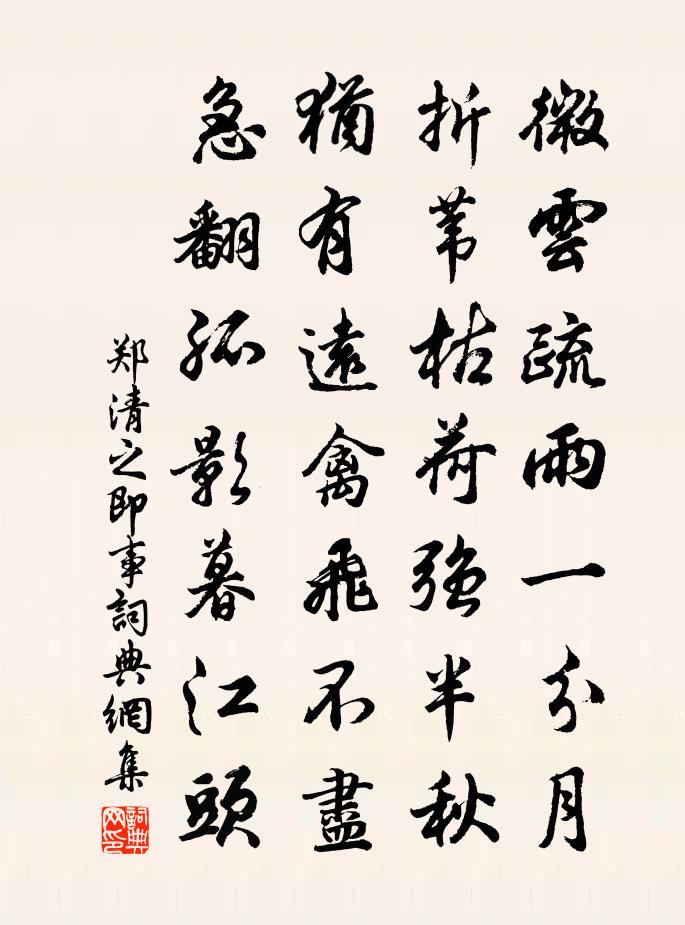 微雲疏雨一分月
折葦枯荷強半秋
猶有遠禽飛不盡
急翻孤影暮江頭
郑清之即事詞典網集
詞典網印